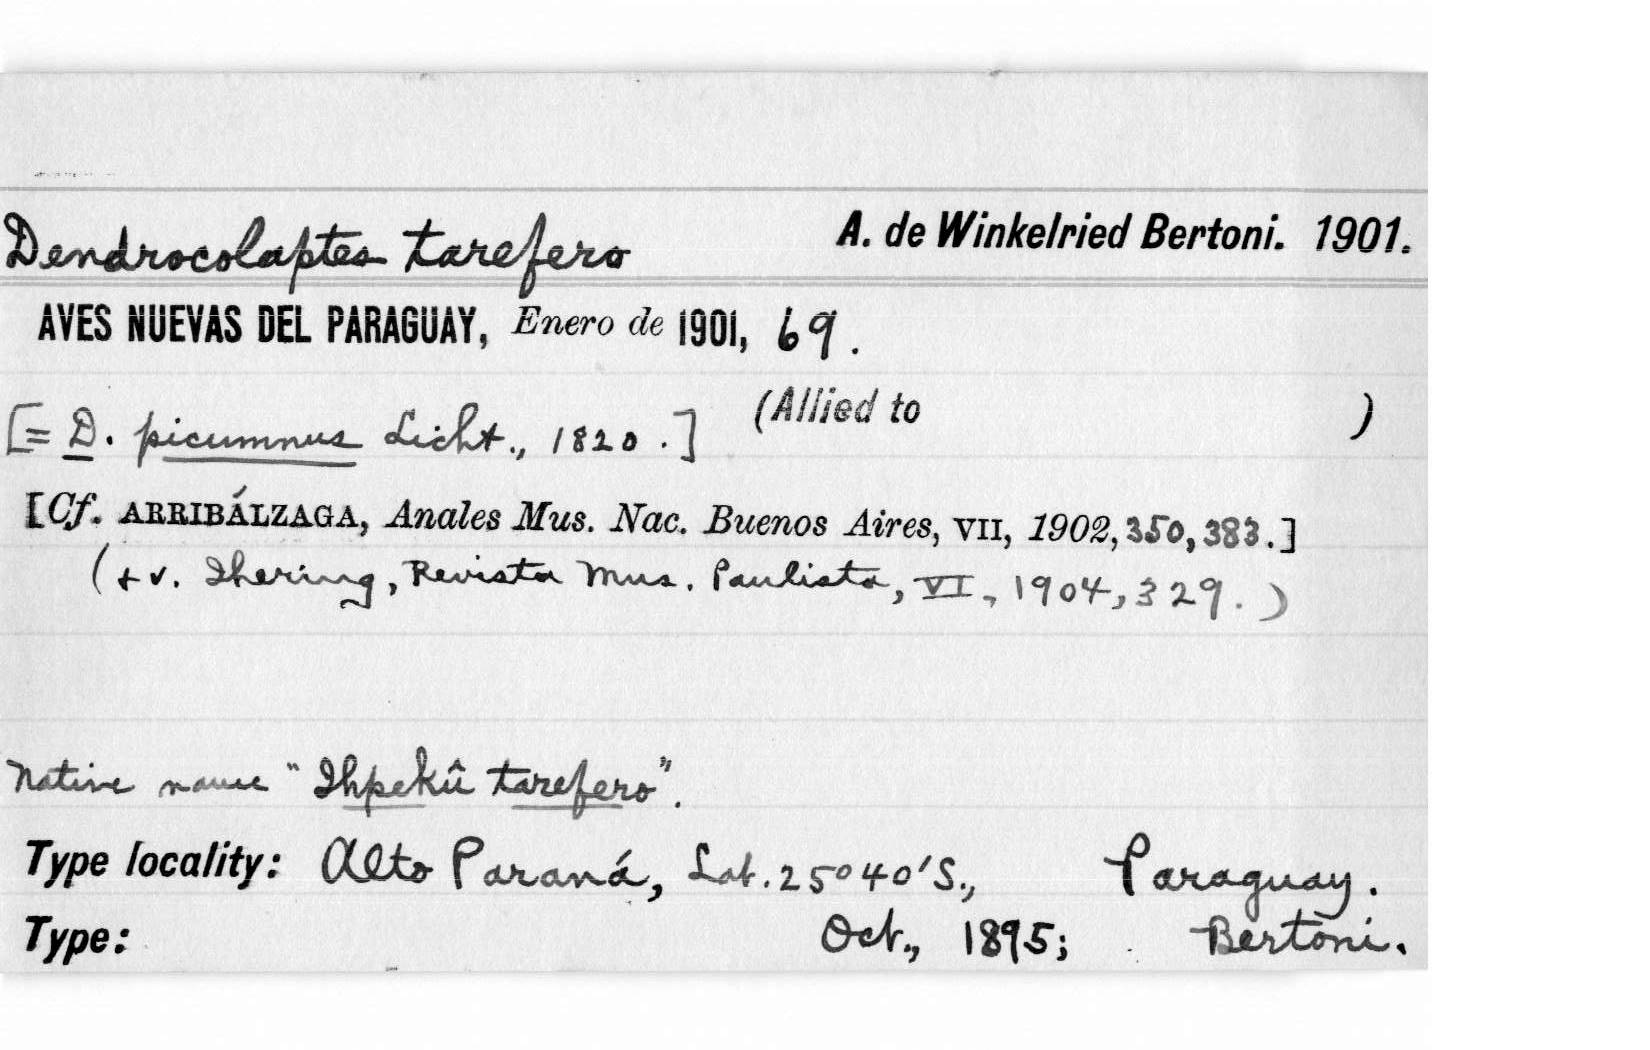 Dendrocolaptes tarefero A. de Winkelried Bertoni. 1901.
AVES NUEVAS DEL PARAGUAY, Enero de 1901, 69.
[= D. picumnus Licht., 1820.] (Allied to )
[Cf. ARRIBÁLZAGA, Anales Mus. Nac. Buenos Aires, VII, 1902, 350, 383.]
(+ v. Ihering, Revista Mus. Paulista, VI, 1904, 329.)
Native name "Ihpekû tarefero".
Type locality: Alto Paraná, Lat. 25°40'S., Paraguay.
Type: Oct., 1895; Bertoni.